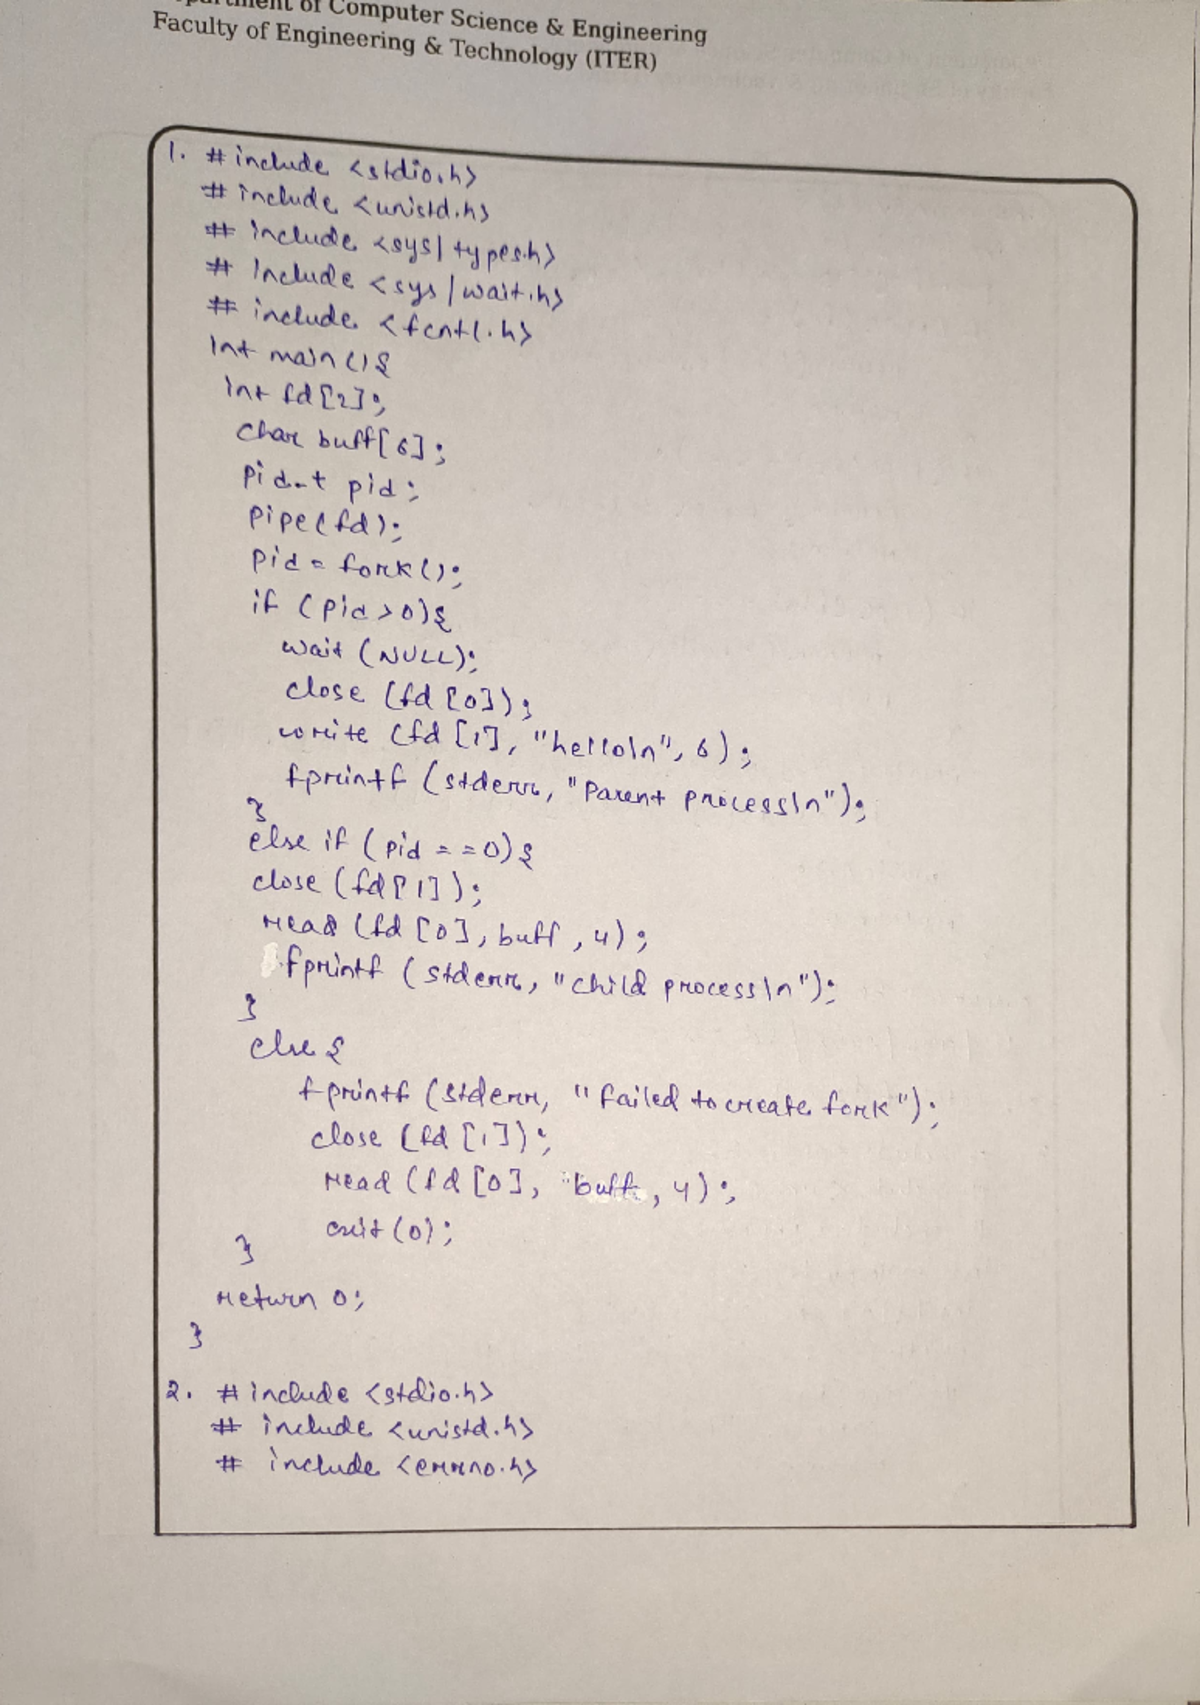 Department of Computer Science & Engineering
Faculty of Engineering & Technology (ITER)
1. #include <stdio.h>
#include <unistd.h>
#include <sys/types.h>
#include <sys/wait.h>
#include <fcntl.h>
int main(){
int fd[2];
char buff[6];
pid_t pid;
pipe(fd);
pid = fork();
if (pid>0){
wait (NULL);
close (fd[0]);
write (fd[1], "hello\n", 6);
fprintf (stderr, "Parent process\n");
}
else if (pid ==0){
close (fd[1]);
read (fd[0], buff, 4);
fprintf (stderr, "child process\n");
}
else {
fprintf (stderr, "failed to create fork");
close (fd[1]);
read (fd[0], buff, 4);
exit(0);
}
return 0;
}
2. #include <stdio.h>
#include <unistd.h>
#include <errno.h>